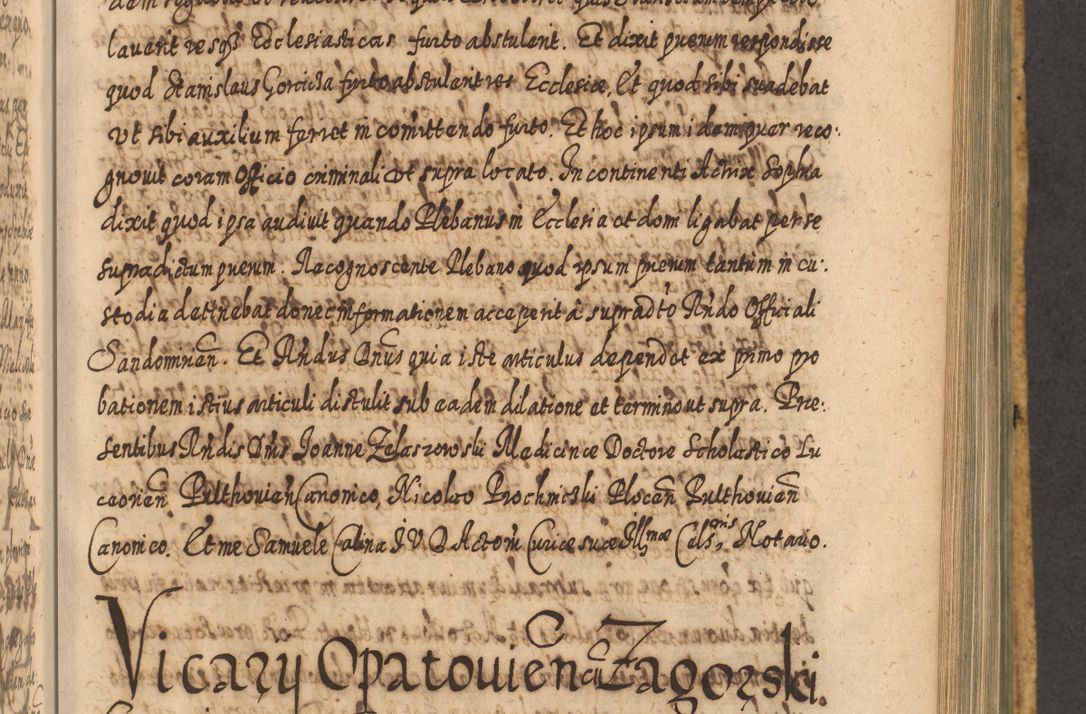 lauerit resqs Ecclesiasticas furto abstulerit. Et dixit puerum respondisse
quod Stanislaus Gorcicza furto abstulerit res Ecclesiæ, Et quod sibi suadebat
vt sibi auxilium ferret in comittendo furto. Et hoc ipsum idem puer reco:
gnouit coram Officio criminali vt supra locato. In continenti Actrix Sophia
dixit quod ipsa audiuit quando Plebanus in Ecclesia et dom ligabat per se
supradictum puerum. Recognoscente Plebano quod ipsum puerum tantum in cu:
stodia detinebat donec informationem acceperit à supradto Rndo Officiali
Sandomrien. Et Rndus Dnus quia iste articulus dependet ex primo pro
bationem istius articuli distulit sub eadem dilatione et termino ut supra. Præ:
sentibus Rndis Dnis Joanne Zelaszowski Medicinæ Doctore Scholastico Lu
ceorien Pulthouien Canonico, Nicolao Prochnicski Plocen Pulthouien
Canonico. Et me Samuele Calina J.V.D Actorum Curiæ suæ Illmæ Celsnis, Notario.
Vicary Opatouien cū Zagorski.